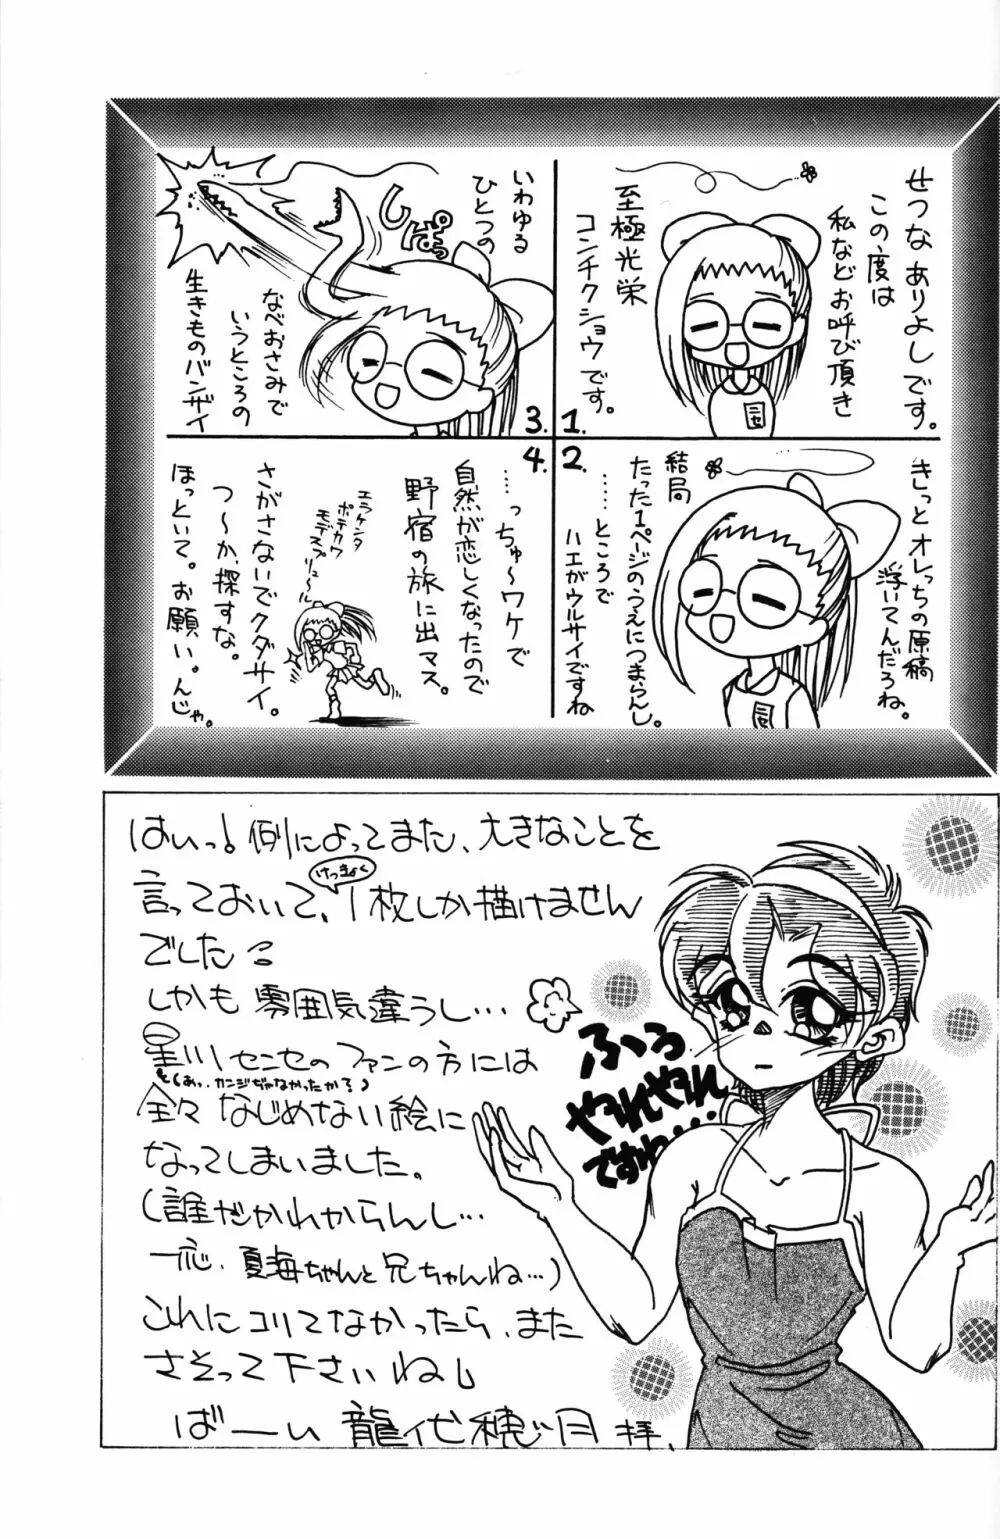 1.
せつな ありよしです。
この度は
私などお呼び頂き
至極光栄
コンチクショウです。
ニセ
2.
きっとオレっちの原稿
浮いてんだろね。
結局
たった1ページのうえにつまらんし。
……ところで
ハエがウルサイですね
ニセ
3.
いわゆる
ひとつの
しぱっ
なべおさみで
いうところの
生きものバンザイ
4.
……っちゅ〜ワケで
自然が恋しくなったので
野宿の旅に出マス。
エラケンタ
ポテカワ
さがさないでクダサイ。
つ〜か探すな。
ほっといて。お願い。んじゃ。
はいっ!例によってまた、大きなことを
言っておいて、けっきょく1枚しか描けません
でした
しかも 雰囲気違うし…
星川センセのファンの方には
(あっ、カンジぢゃなかったか?)
全々なじめない絵に
なってしまいました。
(誰だかわからんし…
一応、夏海ちゃんと兄ちゃんね…)
これにコリてなかったら、また
さそって下さいねし
ばーい 龍代穂月 拝、
ふぅ
やれんやれん
ですね…